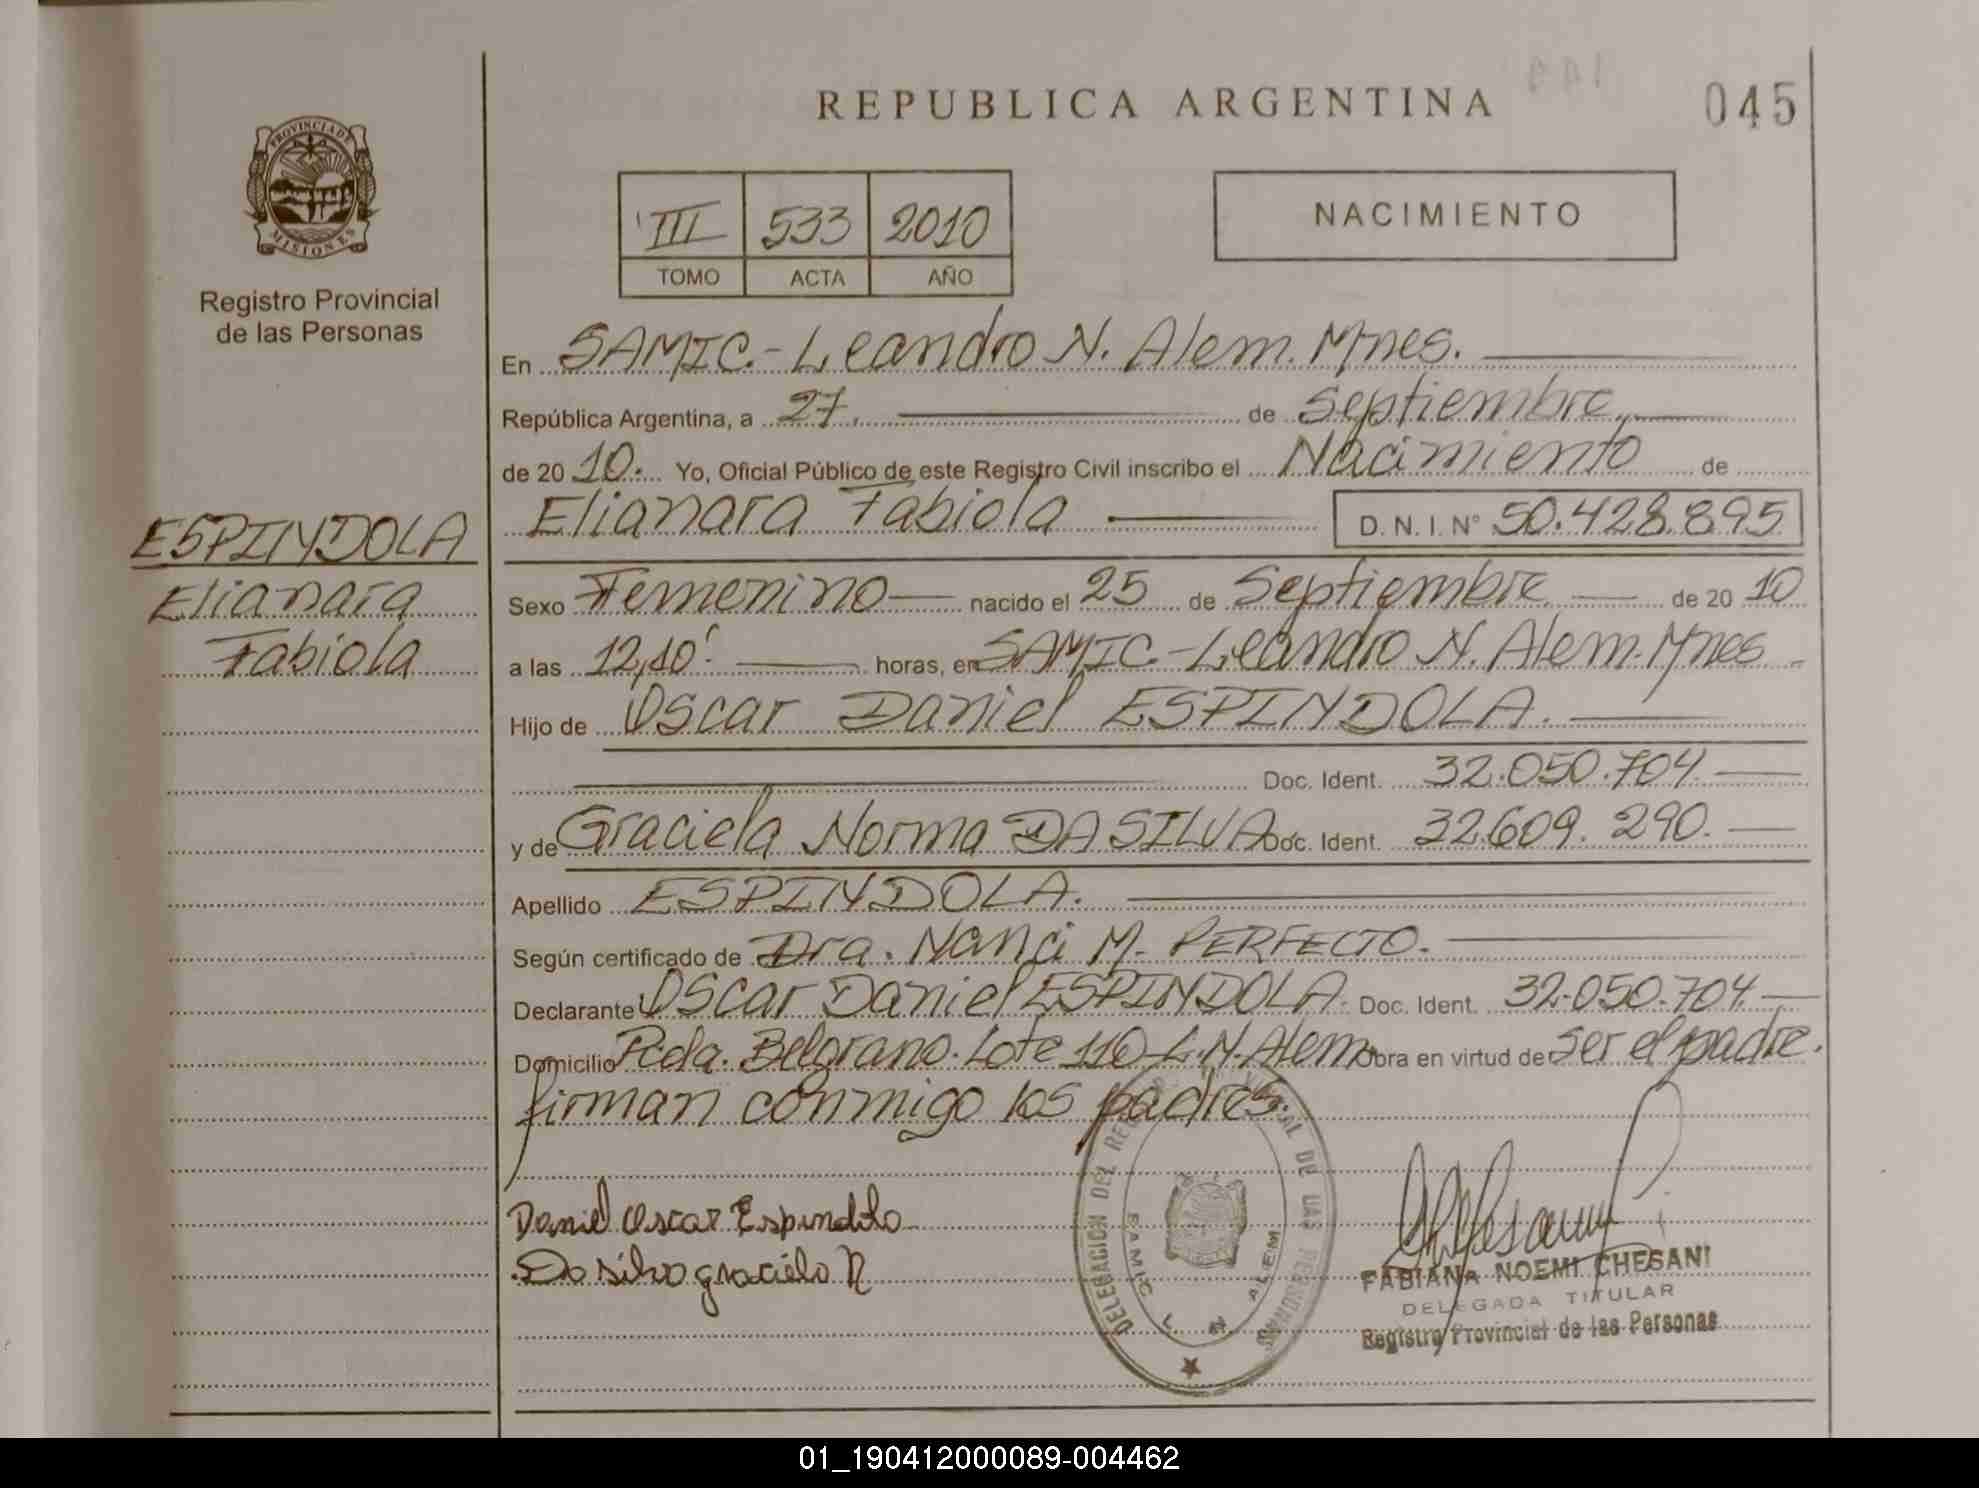 REPUBLICA ARGENTINA
045
PROVINCIA DE
MISIONES
Registro Provincial
de las Personas
III 533 2010
TOMO ACTA AÑO
NACIMIENTO
En SAMIC.- Leandro N. Alem. Mnes.
República Argentina, a 27. de Septiembre
de 2010. Yo, Oficial Público de este Registro Civil inscribo el Nacimiento de
Elianara Fabiola D.N.I. N° 50.428.895
ESPINDOLA
Elianara
Fabiola
Sexo Femenino nacido el 25 de Septiembre de 2010
a las 12,10' horas, en SAMIC.-Leandro N. Alem. Mnes
Hijo de Oscar Daniel ESPINDOLA.
Doc. Ident. 32.050.704
y de Graciela Norma DA SILVA Doc. Ident. 32.609.290.
Apellido ESPINDOLA.
Según certificado de Dra. Nanci M. PERFECTO.
Declarante Oscar Daniel ESPINDOLA. Doc. Ident. 32.050.704
Domicilio Pcda. Belgrano. Lote 110 L.N. Alem Obra en virtud de ser el padre.
firman conmigo los padres.
Daniel Oscar Espindola
Da silva graciela N
DELEGACION DEL DE LAS PERSONAS
SAMIC L. N. ALEM
FABIANA NOEMI CHESANI
DELEGADA TITULAR
Registro Provincial de las Personas
01_190412000089-004462